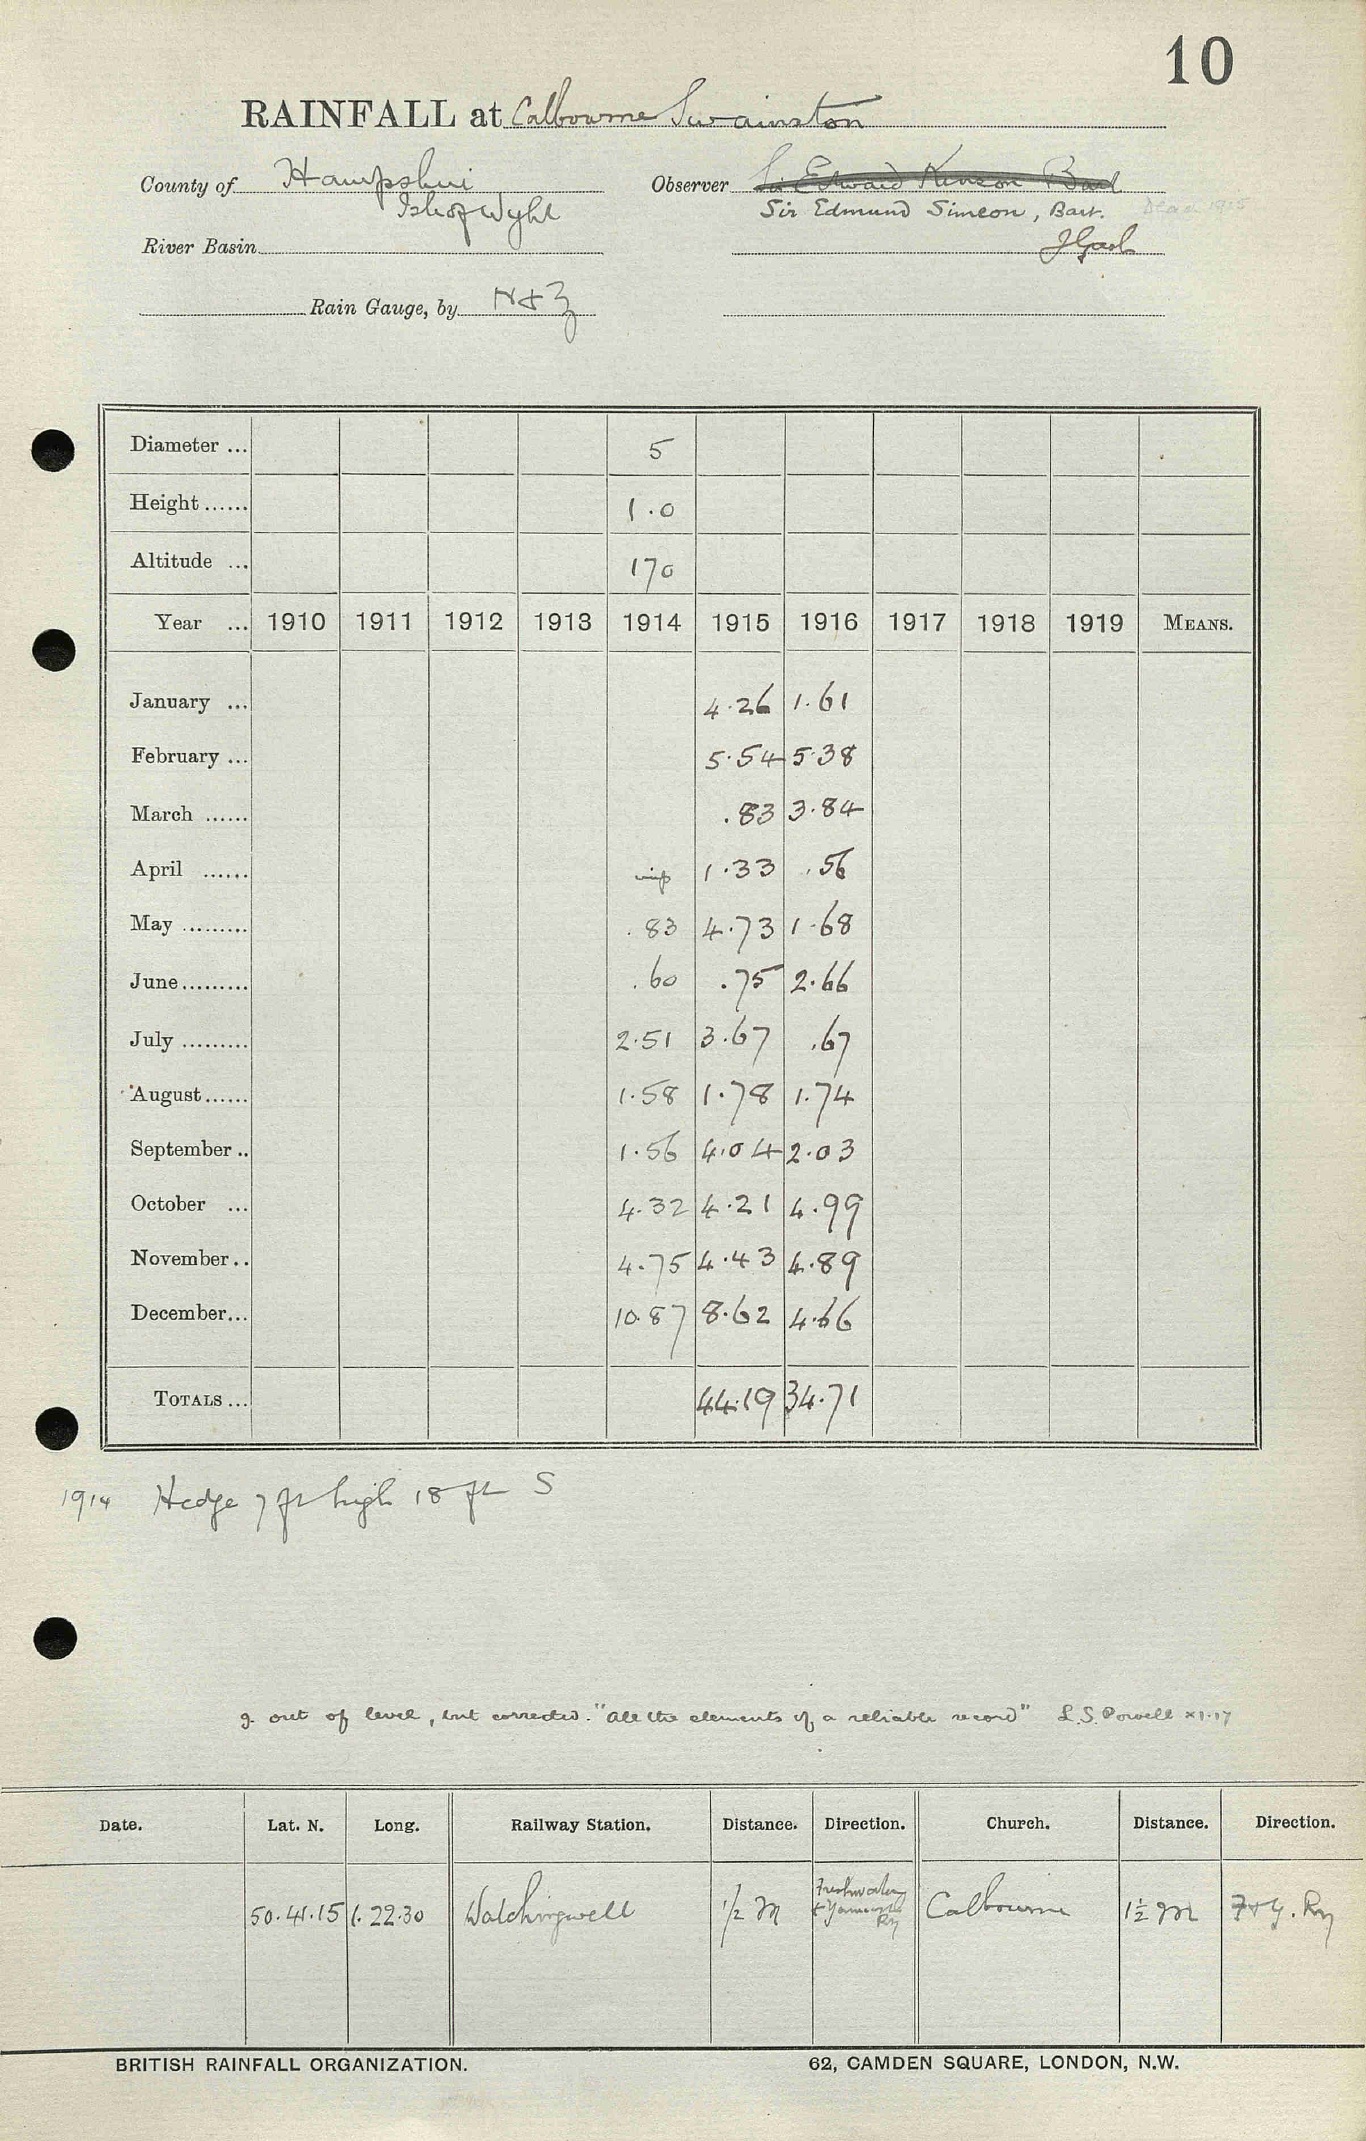 10
RAINFALL at Calbourne Swainston
County of Hampshire Observer Sir Edward Bart
Isle of Wight Sir Edmund Simeon, Bart. Dead 1915
River Basin
Rain Gauge, by N & Z
Diameter ... 5
Height ...... 1.0
Altitude ... 170
Year ... 1910 1911 1912 1913 1914 1915 1916 1917 1918 1919 MEANS.
January ... 4.26 1.61
February ... 5.54 5.38
March ...... .83 3.84
April ...... 1.33 .56
May ......... .83 4.73 1.68
June ......... .60 .75 2.66
July ......... 2.51 3.67 .67
August ...... 1.58 1.78 1.74
September .. 1.56 4.04 2.03
October ... 4.32 4.21 4.99
November .. 4.75 4.43 4.89
December ... 10.87 8.62 4.66
TOTALS ... 44.19 34.71
1914 Hedge 7 ft high 18 ft S
g. out of level, but corrected. "All the elements of a reliable record" L.S. Powell x1.17
Date. Lat. N. Long. Railway Station. Distance. Direction. Church. Distance. Direction.
50.41.15 1.22.30 Watchingwell 1/2 M Freshwater & Yarmouth Ry Calbourne 1½ M F & Y. Ry
BRITISH RAINFALL ORGANIZATION. 62, CAMDEN SQUARE, LONDON, N.W.